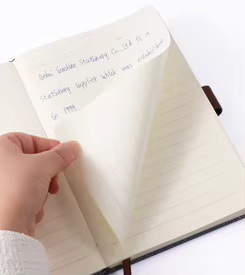 Stationery Co., Ltd is a
stationery supplier which was established
in 1999